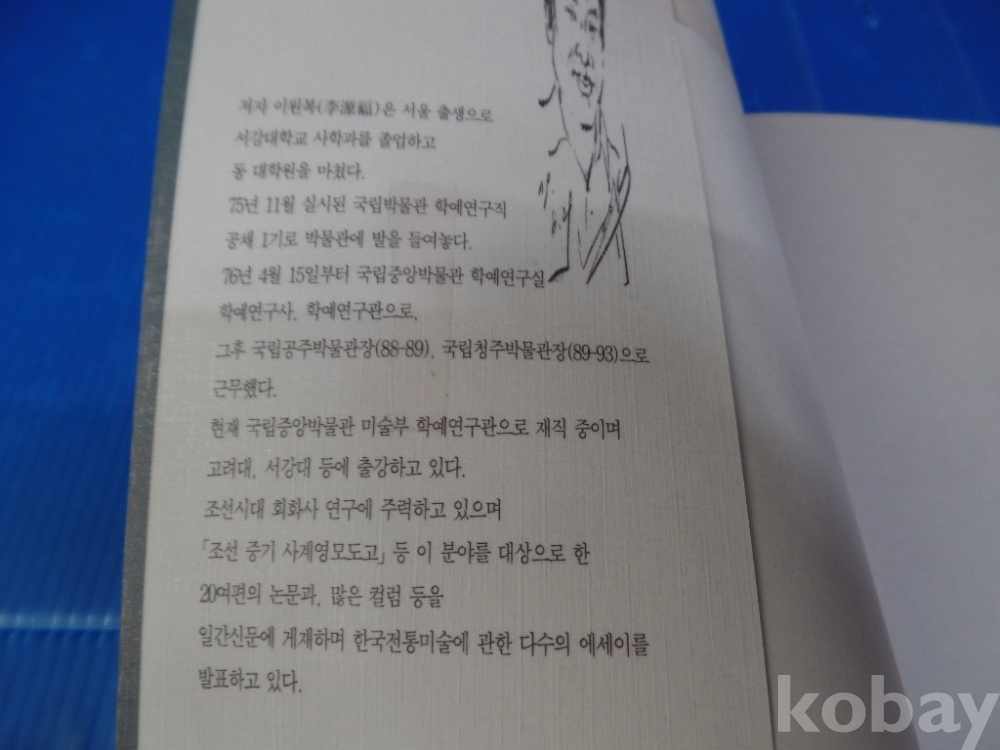 저자 이원복(李源福)은 서울 출생으로
서강대학교 사학과를 졸업하고
동 대학원을 마쳤다.
75년 11월 실시된 국립박물관 학예연구직
공채 1기로 박물관에 발을 들여놓다.
76년 4월 15일부터 국립중앙박물관 학예연구실
학예연구사, 학예연구관으로,
그후 국립공주박물관장(88-89), 국립청주박물관장(89-93)으로
근무했다.
현재 국립중앙박물관 미술부 학예연구관으로 재직 중이며
고려대, 서강대 등에 출강하고 있다.
조선시대 회화사 연구에 주력하고 있으며
「조선 중기 사계영모도고」 등 이 분야를 대상으로 한
20여편의 논문과, 많은 컬럼 등을
일간신문에 게재하며 한국전통미술에 관한 다수의 에세이를
발표하고 있다.
kobay